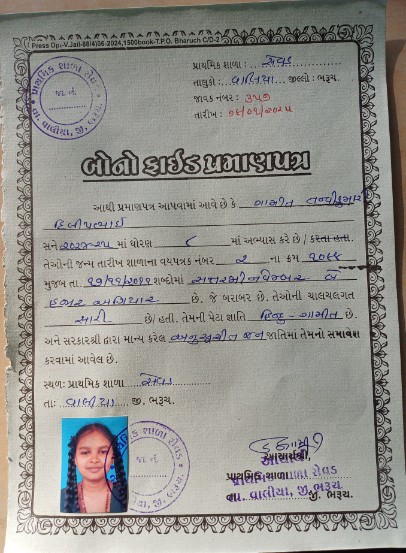 Press Op.-V.Jail-88(4)06-2024,1500book-T.P.O. Bharuch C/D-2
પ્રાથમિક શાળા : સેવડ
તાલુકો : વાલિયા જીલ્લો : ભરૂચ.
જાવક નંબર : ૩૫૭
તારીખ :
પ્રાથમિક શાળા સેવડ
જા. નં.
તા. વાલીયા, જી. ભરૂચ
બોનોફાઈડ પ્રમાણપત્ર
આથી પ્રમાણપત્ર આપવામાં આવે છે કે ગામીત
દિલીપભાઈ
સને ૨૦૨૪-૨૫ માં ધોરણ ૮ માં અભ્યાસ કરે છે / કરતા હતા.
તેઓની જન્મ તારીખ શાળાના વયપત્રક નંબર ૨ ના ક્રમ
મુજબ તા. ૧૭/૧૧/૨૦૧૧ શબ્દોમાં સત્તરમી નવેમ્બર બે
હજાર અગિયાર છે. જે બરાબર છે. તેઓની ચાલચલગત
સારી છે/ હતી. તેમની પેટા જ્ઞાતિ હિન્દુ - ગામીત છે.
અને સરકારશ્રી દ્વારા માન્ય કરેલ અનુસૂચિત જન જાતિમાં તેમનો સમાવેશ
કરવામાં આવેલ છે.
સ્થળ: પ્રાથમિક શાળા સેવડ
તા: વાલીયા જી. ભરૂચ.
જા. નં.
આચાર્યશ્રી,
પ્રાથમિક શાળા સેવડ
તા. વાલીયા, જી. ભરૂચ
જી. ભરૂચ.